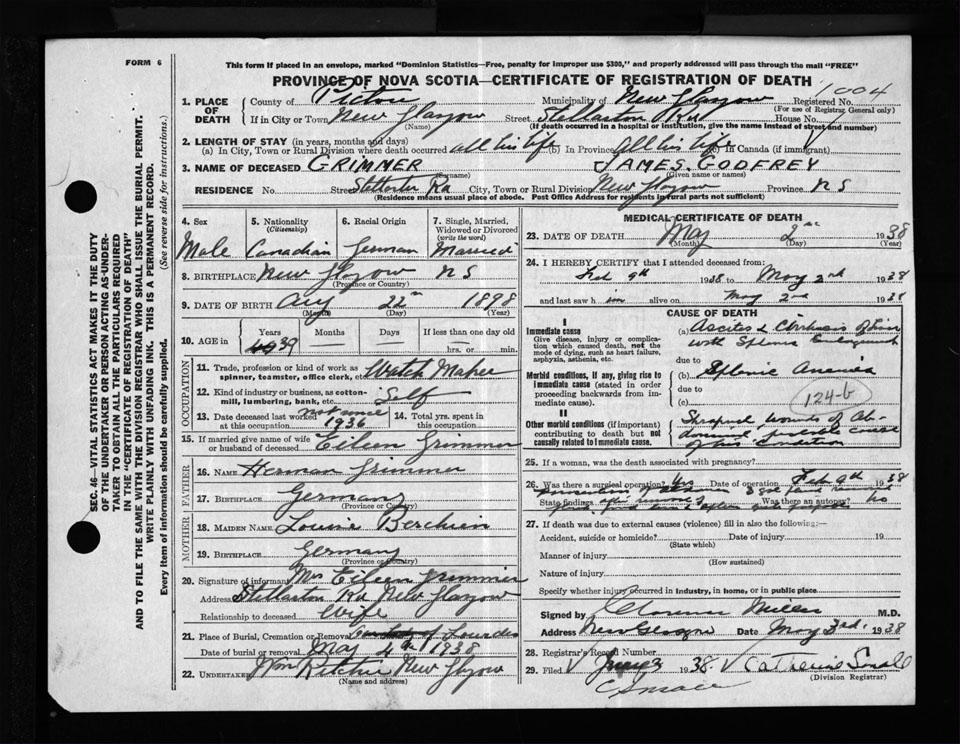 FORM 6
This form if placed in an envelope, marked "Dominion Statistics—Free, penalty for improper use $300," and properly addressed will pass through the mail "FREE"
PROVINCE OF NOVA SCOTIA—CERTIFICATE OF REGISTRATION OF DEATH
1004
1. PLACE OF DEATH
County of Pictou Municipality of New Glasgow Registered No.
(For use of Registrar General only)
If in City or Town New Glasgow Street Stellarton Rd House No.
(Name) (If death occurred in a hospital or institution, give the name instead of street and number)
2. LENGTH OF STAY (in years, months and days)
(a) In City, Town or Rural Division where death occurred all his life (b) In Province all his life In Canada (if immigrant)
3. NAME OF DECEASED GRIMMER JAMES GODFREY
(Given name or names)
RESIDENCE No. Street Stellarton Rd City, Town or Rural Division New Glasgow Province N S
(Residence means usual place of abode. Post Office Address for residents in rural parts not sufficient)
4. Sex 5. Nationality (Citizenship) 6. Racial Origin 7. Single, Married, Widowed or Divorced (write the word)
Male Canadian German Married
8. BIRTHPLACE New Glasgow N S
(Province or Country)
9. DATE OF BIRTH Aug 22 1898
(Month) (Day) (Year)
10. AGE in Years Months Days If less than one day old
39 — — hrs. or min.
OCCUPATION
11. Trade, profession or kind of work as spinner, teamster, office clerk, etc. Watch Maker
12. Kind of industry or business, as cotton-mill, lumbering, bank, etc. Self
13. Date deceased last worked at this occupation not since 1936 14. Total yrs. spent in this occupation
15. If married give name of wife or husband of deceased Eileen Grimmer
FATHER
16. Name Herman Grimmer
17. Birthplace Germany
(Province or Country)
MOTHER
18. Maiden Name Louise
19. Birthplace Germany
(Province or Country)
20. Signature of informant Mrs Eileen Grimmer
Address Stellarton Rd New Glasgow
Relationship to deceased Wife
21. Place of Burial, Cremation or Removal Lourdes
Date of burial or removal May 4 1938
22. UNDERTAKER Ritchie New Glasgow
(Name and address)
MEDICAL CERTIFICATE OF DEATH
23. DATE OF DEATH May 2nd 1938
(Month) (Day) (Year)
24. I HEREBY CERTIFY that I attended deceased from:
Feb 9th 1938 to May 2nd 1938
and last saw him alive on May 2nd 1938
CAUSE OF DEATH
I
Immediate cause
Give disease, injury or complication which caused death, not the mode of dying, such as heart failure, asphyxia, asthenia, etc.
(a) Ascites & Cirrhosis of Liver
with Splenic Enlargement
due to
Morbid conditions, if any, giving rise to immediate cause (stated in order proceeding backwards from immediate cause).
(b) Splenic Anaemia
due to
(c)
124-b
II
Other morbid conditions (if important) contributing to death but not causally related to immediate cause.
Shrapnel wounds of Abdomen probable cause
of this condition
25. If a woman, was the death associated with pregnancy?
26. Was there a surgical operation? Yes Date of operation Feb 9th 1938
State findings Was there an autopsy? no
27. If death was due to external causes (violence) fill in also the following:—
Accident, suicide or homicide? Date of injury 19
(State which)
Manner of injury
(How sustained)
Nature of injury
Specify whether injury occurred in industry, in home, or in public place
Signed by Clarence Miller M.D.
Address New Glasgow Date May 3rd. 1938
28. Registrar's Record Number
29. Filed 1938 Catherine Small
(Division Registrar)
C Small
SEC. 46—VITAL STATISTICS ACT MAKES IT THE DUTY
OF THE UNDERTAKER OR PERSON ACTING AS UNDERTAKER
TO OBTAIN ALL THE PARTICULARS REQUIRED
IN THE "CERTIFICATE OF REGISTRATION OF DEATH"
AND TO FILE THE SAME WITH THE DIVISION REGISTRAR WHO SHALL ISSUE THE BURIAL PERMIT.
WRITE PLAINLY WITH UNFADING INK. THIS IS A PERMANENT RECORD.
Every item of information should be carefully supplied. (See reverse side for instructions.)